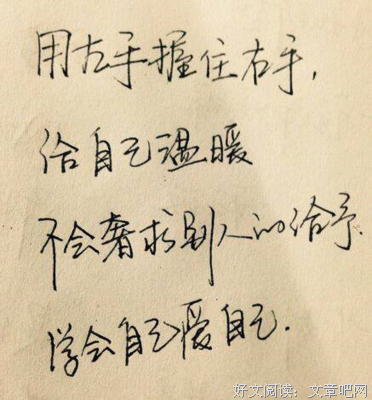 用左手握住右手,
给自己温暖
不会奢求别人的给予.
学会自己爱自己.
好文阅读:文章吧网